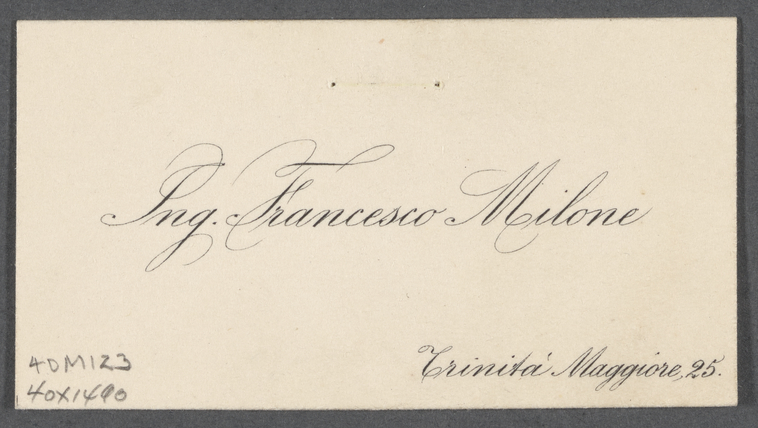 Ing. Francesco Milone
Trinitá Maggiore, 25.
4DM123
40X1490